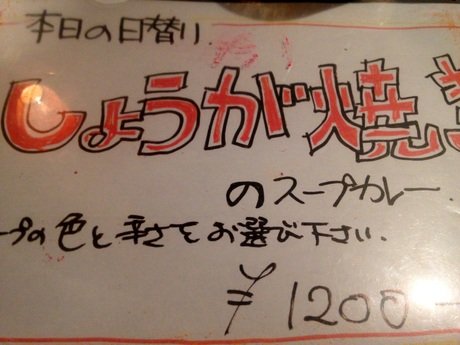 本日の日替り
しょうが焼き
のスープカレー
ープの色と辛さをお選び下さい.
¥1200-